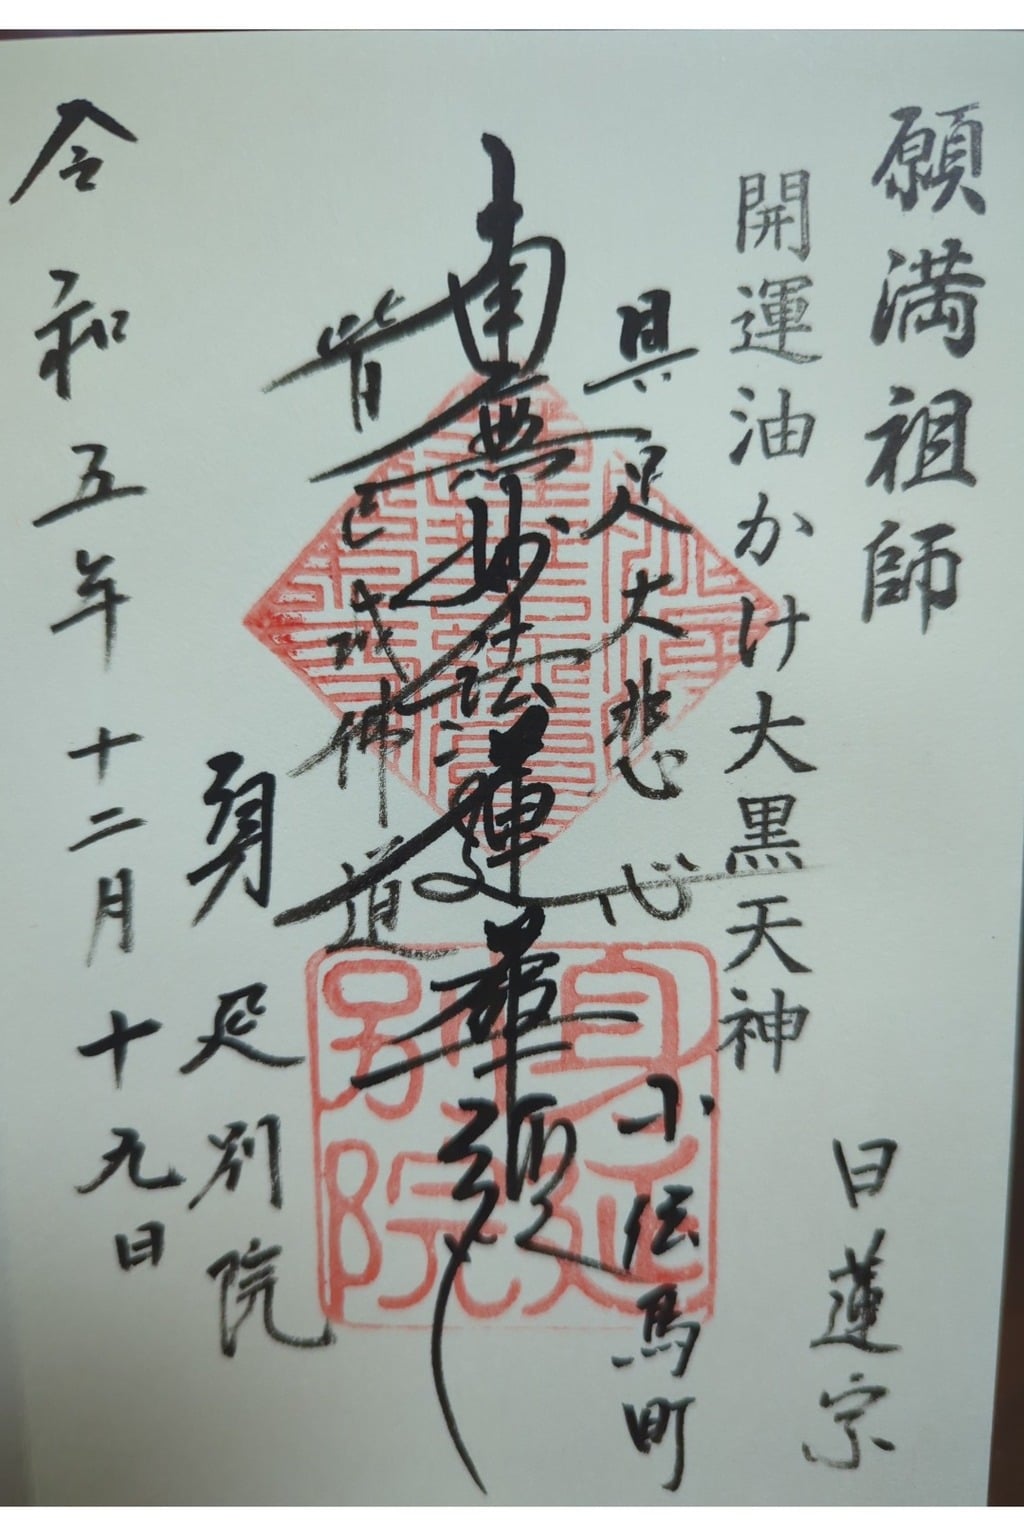 願満祖師
開運油かけ大黒天神
日蓮宗
具足大悲心
小伝馬町
南無妙法蓮華経
皆已成佛道
身延別院
令和五年十二月十九日
身延別院